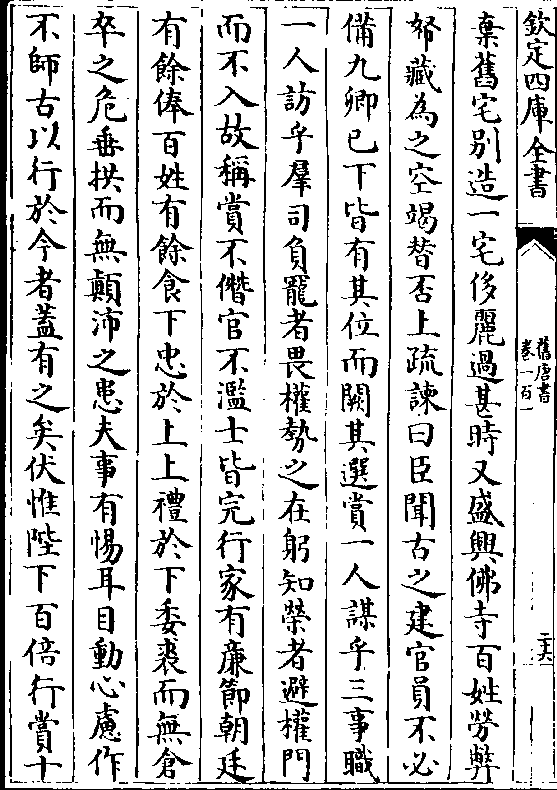 欽定四庫全書
舊唐書
卷一百一
二十六
棄舊宅別造一宅侈麗過甚時又盛興佛寺百姓勞弊
帑藏為之空竭替否上疏諫曰臣聞古之建官員不必
備九卿已下皆有其位而闕其選賞一人謀乎三事職
一人訪乎羣司負寵者畏權勢之在躬知榮者避權門
而不入故稱賞不僭官不濫士皆完行家有廉節朝廷
有餘俸百姓有餘食下忠於上上禮於下委裘而無倉
卒之危垂拱而無顛沛之患夫事有惕耳目動心慮作
不師古以行於今者蓋有之矣伏惟陛下百倍行賞十